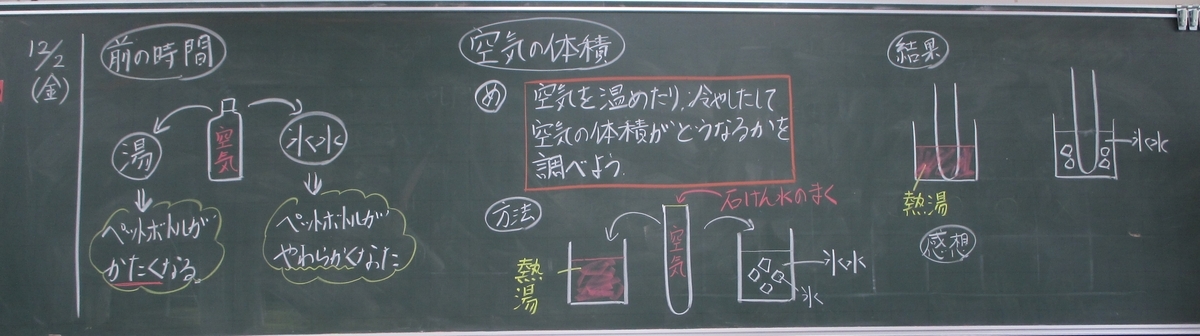 12/2
(金)
前の時間
空気
湯
氷水
ペットボトルが
かたくなる。
ペットボトルが
やわらかくなった
空気の体積
め
空気を温めたり、冷やしたして
空気の体積がどうなるかを
調べよう.
方法
石けん水のまく
空気
熱湯
氷水
氷
結果
熱湯
氷水
感想